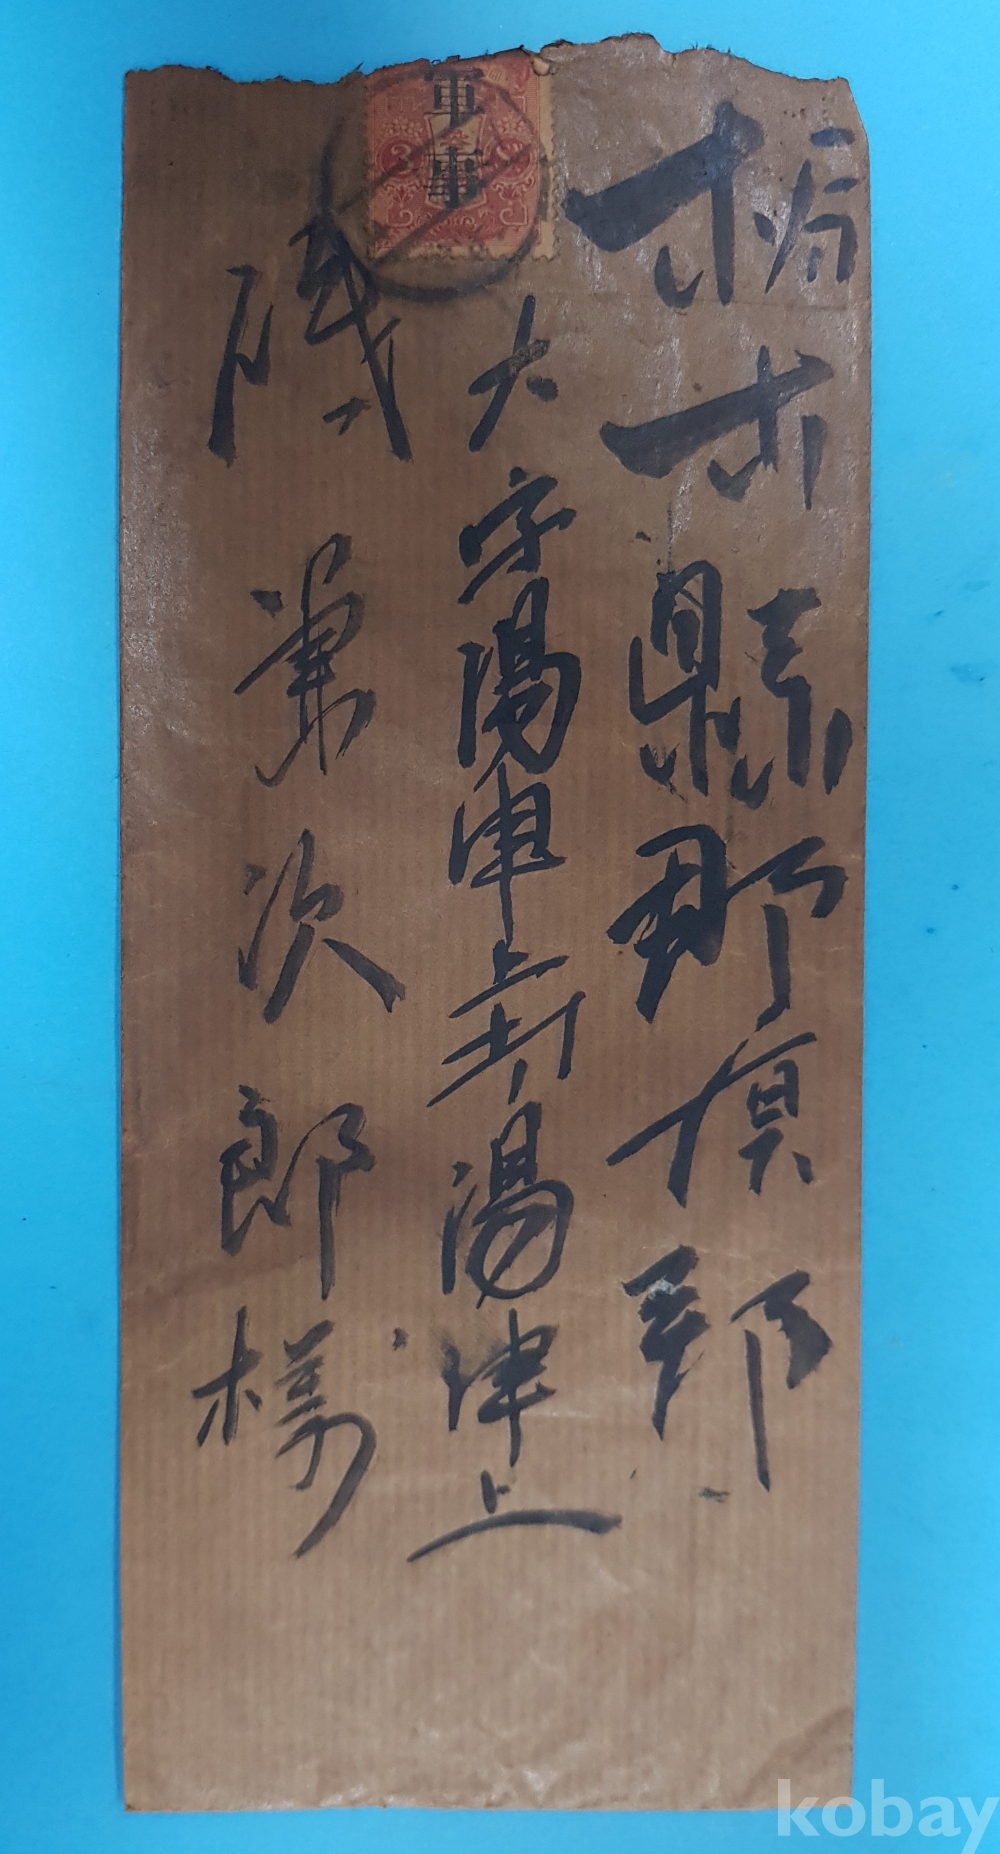 軍事
3
栃木縣那須郡
大字湯津上村湯津上
兼次郎様
kobay